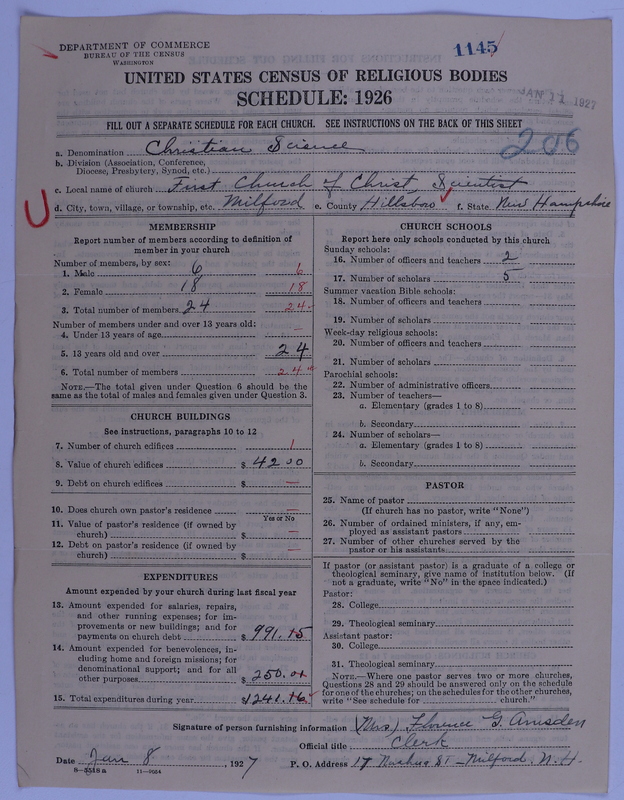 DEPARTMENT OF COMMERCE
BUREAU OF THE CENSUS
WASHINGTON
1145
UNITED STATES CENSUS OF RELIGIOUS BODIES
SCHEDULE: 1926
JAN 11 1927
FILL OUT A SEPARATE SCHEDULE FOR EACH CHURCH. SEE INSTRUCTIONS ON THE BACK OF THIS SHEET
206
a. Denomination Christian Science
b. Division (Association, Conference, Diocese, Presbytery, Synod, etc.)
c. Local name of church First Church of Christ, Scientist
d. City, town, village, or township, etc. Milford e. County Hillsboro f. State New Hampshire
MEMBERSHIP
Report number of members according to definition of member in your church
Number of members, by sex:
1. Male 6 6
2. Female 18 18
3. Total number of members 24 24
Number of members under and over 13 years old:
4. Under 13 years of age —
5. 13 years old and over 24
6. Total number of members 24
NOTE.—The total given under Question 6 should be the same as the total of males and females given under Question 3.
CHURCH BUILDINGS
See instructions, paragraphs 10 to 12
7. Number of church edifices 1
8. Value of church edifices $ 4200
9. Debt on church edifices $ —
10. Does church own pastor's residence —
Yes or No
11. Value of pastor's residence (if owned by church) $ —
12. Debt on pastor's residence (if owned by church) $ —
EXPENDITURES
Amount expended by your church during last fiscal year
13. Amount expended for salaries, repairs, and other running expenses; for improvements or new buildings; and for payments on church debt $ 991.
14. Amount expended for benevolences, including home and foreign missions; for denominational support; and for all other purposes $ 250.
15. Total expenditures during year $ 1241.
CHURCH SCHOOLS
Report here only schools conducted by this church
Sunday schools:
16. Number of officers and teachers 2
17. Number of scholars 5
Summer vacation Bible schools:
18. Number of officers and teachers
19. Number of scholars
Week-day religious schools:
20. Number of officers and teachers
21. Number of scholars
Parochial schools:
22. Number of administrative officers
23. Number of teachers—
a. Elementary (grades 1 to 8)
b. Secondary
24. Number of scholars—
a. Elementary (grades 1 to 8)
b. Secondary
PASTOR
25. Name of pastor
(If church has no pastor, write "None")
26. Number of ordained ministers, if any, employed as assistant pastors
27. Number of other churches served by the pastor or his assistants
If pastor (or assistant pastor) is a graduate of a college or theological seminary, give name of institution below. (If not a graduate, write "No" in the space indicated.)
Pastor:
28. College
29. Theological seminary
Assistant pastor:
30. College
31. Theological seminary
NOTE.—Where one pastor serves two or more churches, Questions 28 and 29 should be answered only on the schedule for one of the churches; on the schedules for the other churches, write "See schedule for church."
Signature of person furnishing information (Mrs) Florence G. Amsden
Official title Clerk
Date Jan 8, 1927 P. O. Address 17 Nashua St - Milford, N. H.
8-3518a 11-9064